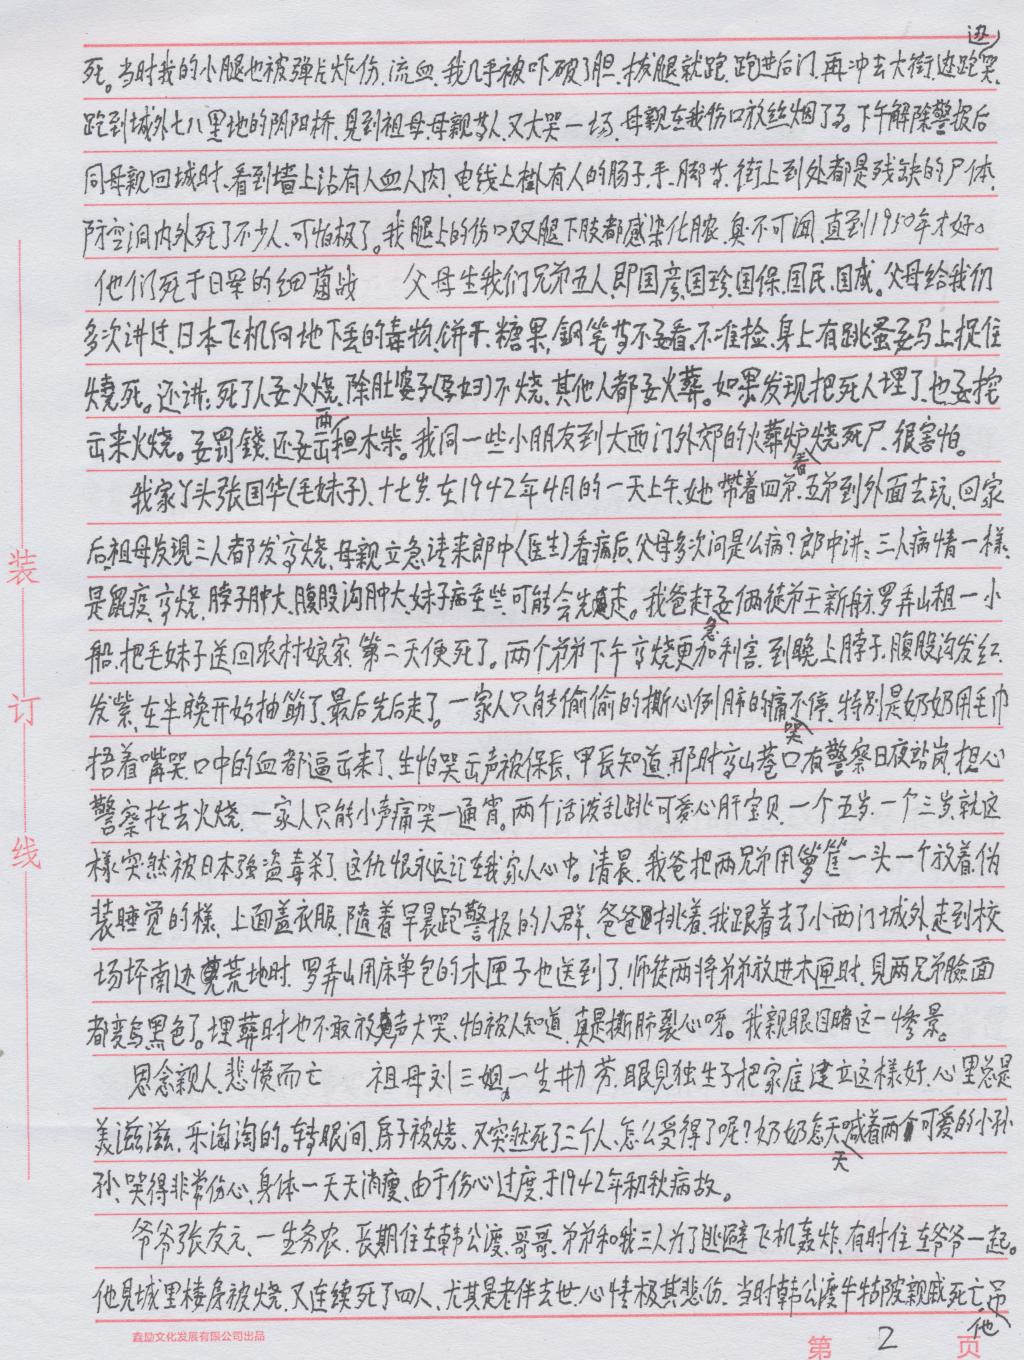 死。当时我的小腿也被弹片炸伤，流血，我几乎被吓破了胆，拔腿就跑，跑进后门，再冲去大街，边跑边哭，
跑到城外七八里地的阴阳桥，见到祖母、母亲等人，又大哭一场，母亲在我伤口放丝烟了事。下午解除警报后
同母亲回城时，看到墙上沾有人血人肉，电线上掛有人的肠子、手、脚等，街上到处都是残缺的尸体，
防空洞内外死了不少人，可怕极了。我腿上的伤口双腿下肢都感染化脓，臭不可闻，直到1950年才好。
他们死于日军的细菌战　　父母生我们兄弟五人，即国彦、国珍、国保、国民、国成。父母给我们
多次讲过，日本飞机向地下丢的毒物、饼干、糖果、鋼笔等不要看，不准捡，身上有跳蚤要马上捉住
燒死。还讲：死了人要火烧，除肚婆子(孕妇)不烧，其他人都要火葬。如果发现把死人埋了，也要挖
出来火烧。要罚錢，还要出两担木柴。我同一些小朋友到大西门外郊的火葬炉看烧死尸，很害怕。
我家丫头张国华(毛妹子)，十七岁，在1942年4月的一天上午，她帶着四弟、五弟到外面去玩，回家
后，祖母发現三人都发高烧，母亲立急请来郎中(医生)看病后，父母多次问是么病？郎中讲：三人病情一様，
是鼠疫，高烧，脖子肿大，腹股沟肿大，妹子病重些，可能会先走。我爸赶急要俩徒弟王新舫、罗弄山租一小
船，把毛妹子送回农村娘家，第二天便死了。两个弟弟下午高烧更加利害，到晚上脖子、腹股沟发红、
发紫，在半晚开始抽筋了，最后先后走了。一家人只能偷偷的撕心倒肺的痛哭不停，特别是奶奶用毛巾
捂着嘴哭，口中的血都逼出来了，生怕哭出声被保长、甲长知道，那时高山巷口有警察日夜站岗，担心
警察拖去火烧，一家人只能小声痛哭一通宵。两个活泼乱跳可爱心肝宝贝，一个五岁，一个三岁，就这
様突然被日本强盗毒杀了，这仇恨永远记在我家人心中。清晨，我爸把两兄弟用箩筐一头一个放着，伪
装睡觉的様，上面盖衣服，随着早晨跑警报的人群，爸爸挑着，我跟着去了小西门城外，走到校
场坪南边荒地时，罗弄山用床单包的木匣子也送到了，师徒两将弟弟放进木匣时，見两兄弟臉面
都变乌黑色了。埋葬时也不敢放声大哭，怕被人知道，真是撕肺裂心呀。我親眼目睹这一惨景。
思念親人，悲愤而亡　　祖母刘三姐，一生勤劳，眼見独生子把家庭建立这様好，心里总是
美滋滋，乐淘淘的。转眼间，房子被烧，又突然死了三个人，怎么受得了呢？奶奶天天喊着两个可爱的小孙
孙，哭得非常伤心，身体一天天消瘦，由于伤心过度，于1942年初秋病故。
爷爷张友元，一生务农，长期住在韩公渡，哥哥、弟弟和我三人为了逃避飞机轰炸，有时住在爷爷一起。
他見城里楼房被烧，又连续死了四人，尤其是老伴去世，心情极其悲伤，当时韩公渡牛牯陂親戚死亡，他
装
订
线
鑫励文化发展有限公司出品
第2页